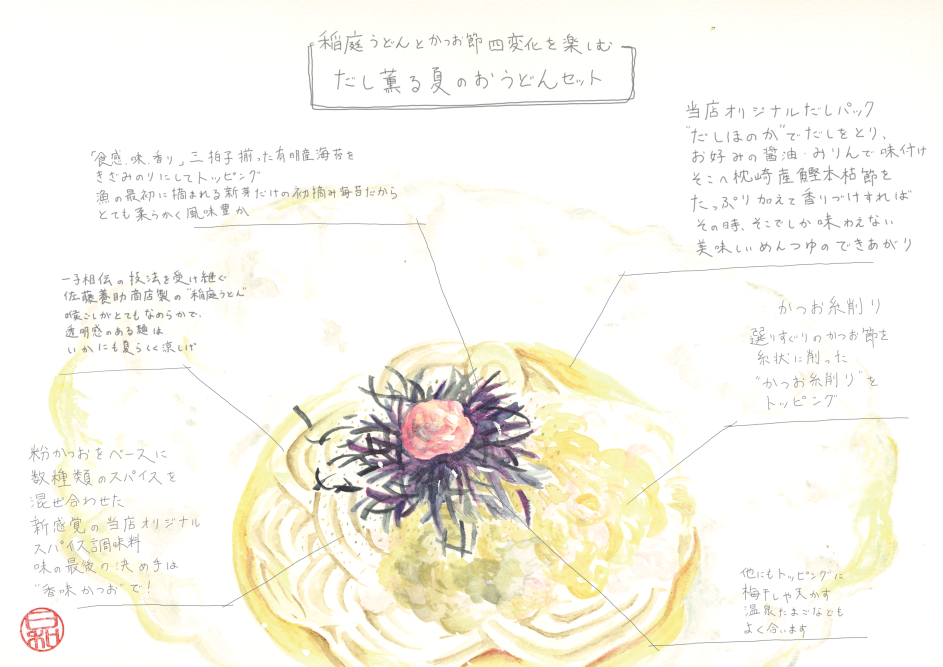 稲庭うどんとかつお節四変化を楽しむ
だし薫る夏のおうどんセット
「食感、味、香り」三拍子揃った有明産海苔を
きざみのりにしてトッピング
漁の最初に摘まれる新芽だけの初摘み海苔だから
とても柔らかく風味豊か
当店オリジナルだしパック
"だしほのか"でだしをとり、
お好みの醤油・みりんで味付け
そこへ枕崎産鰹本枯節を
たっぷり加えて香りづけすれば
その時、そこでしか味わえない
美味しいめんつゆのできあがり
一子相伝の技法を受け継ぐ
佐藤養助商店製の"稲庭うどん"
喉ごしがとてもなめらかで、
透明感のある麺は
いかにも夏らしく涼しげ
かつお糸削り
選りすぐりのかつお節を
糸状に削った
"かつお糸削り"を
トッピング
粉かつおをベースに
数種類のスパイスを
混ぜ合わせた
新感覚の当店オリジナル
スパイス調味料
味の最後の決め手は
"香味かつお"で!
他にもトッピングに
梅干しや天かす
温泉たまごなども
よく合います